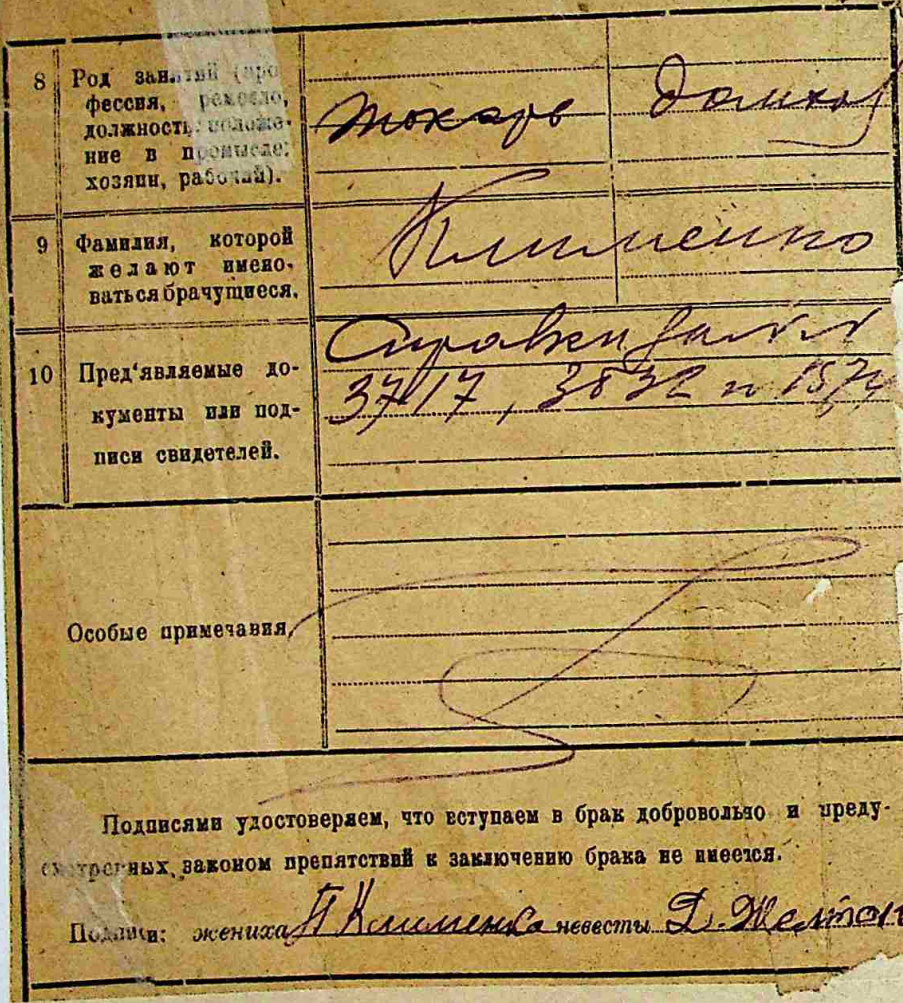 8 Род занятий (про
фессия, ремесло,
должность, положе-
ние в промысле:
хозяин, рабочий).
токарь домхоз
9 Фамилия, которой
желают имено-
ваться брачущиеся.
Клименко
10 Пред'являемые до-
кументы или под-
писи свидетелей.
Справки за №№
3717, 3832 и
Особые примечания
Подписями удостоверяем, что вступаем в брак добровольно и преду-
смотренных законом препятствий к заключению брака не имеется.
Подписи: жениха П Клименко невесты Д. Желтон